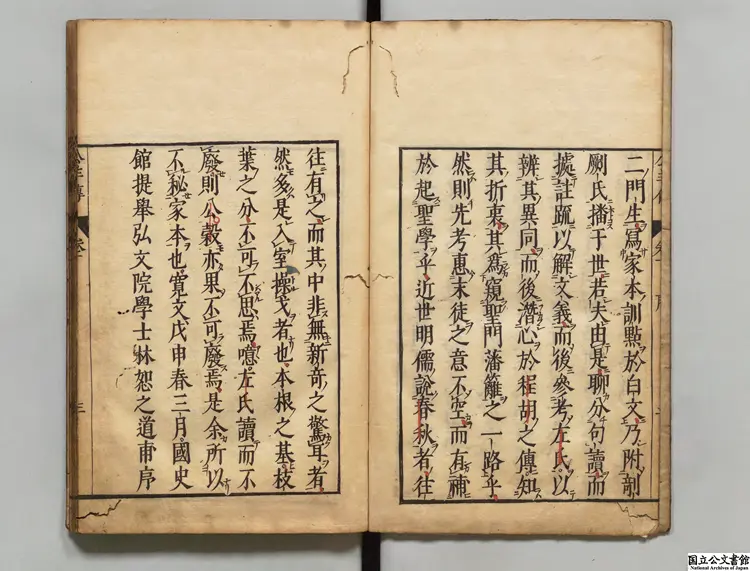 二門生寫家本訓點於白文乃附剞
劂氏播于世若夫由是聊分句讀而
據註疏以解文義而後參考左氏以
辨其異同而後潛心於程胡之傳知
其折衷其爲窺聖門藩籬之一路乎
然則先考惠末徒之意不空而有補
於起聖學乎近世明儒說春秋者往
往有之而其中非無新奇之驚耳者
然多是入室操戈者也本根之基枝
葉之分不可不思焉噫左氏讀而不
廢則公穀亦果不可廢焉是余所以
不秘家本也寬文戊申春三月國史
館提舉弘文院學士林恕之道甫序
三
国立公文書館
National Archives of Japan